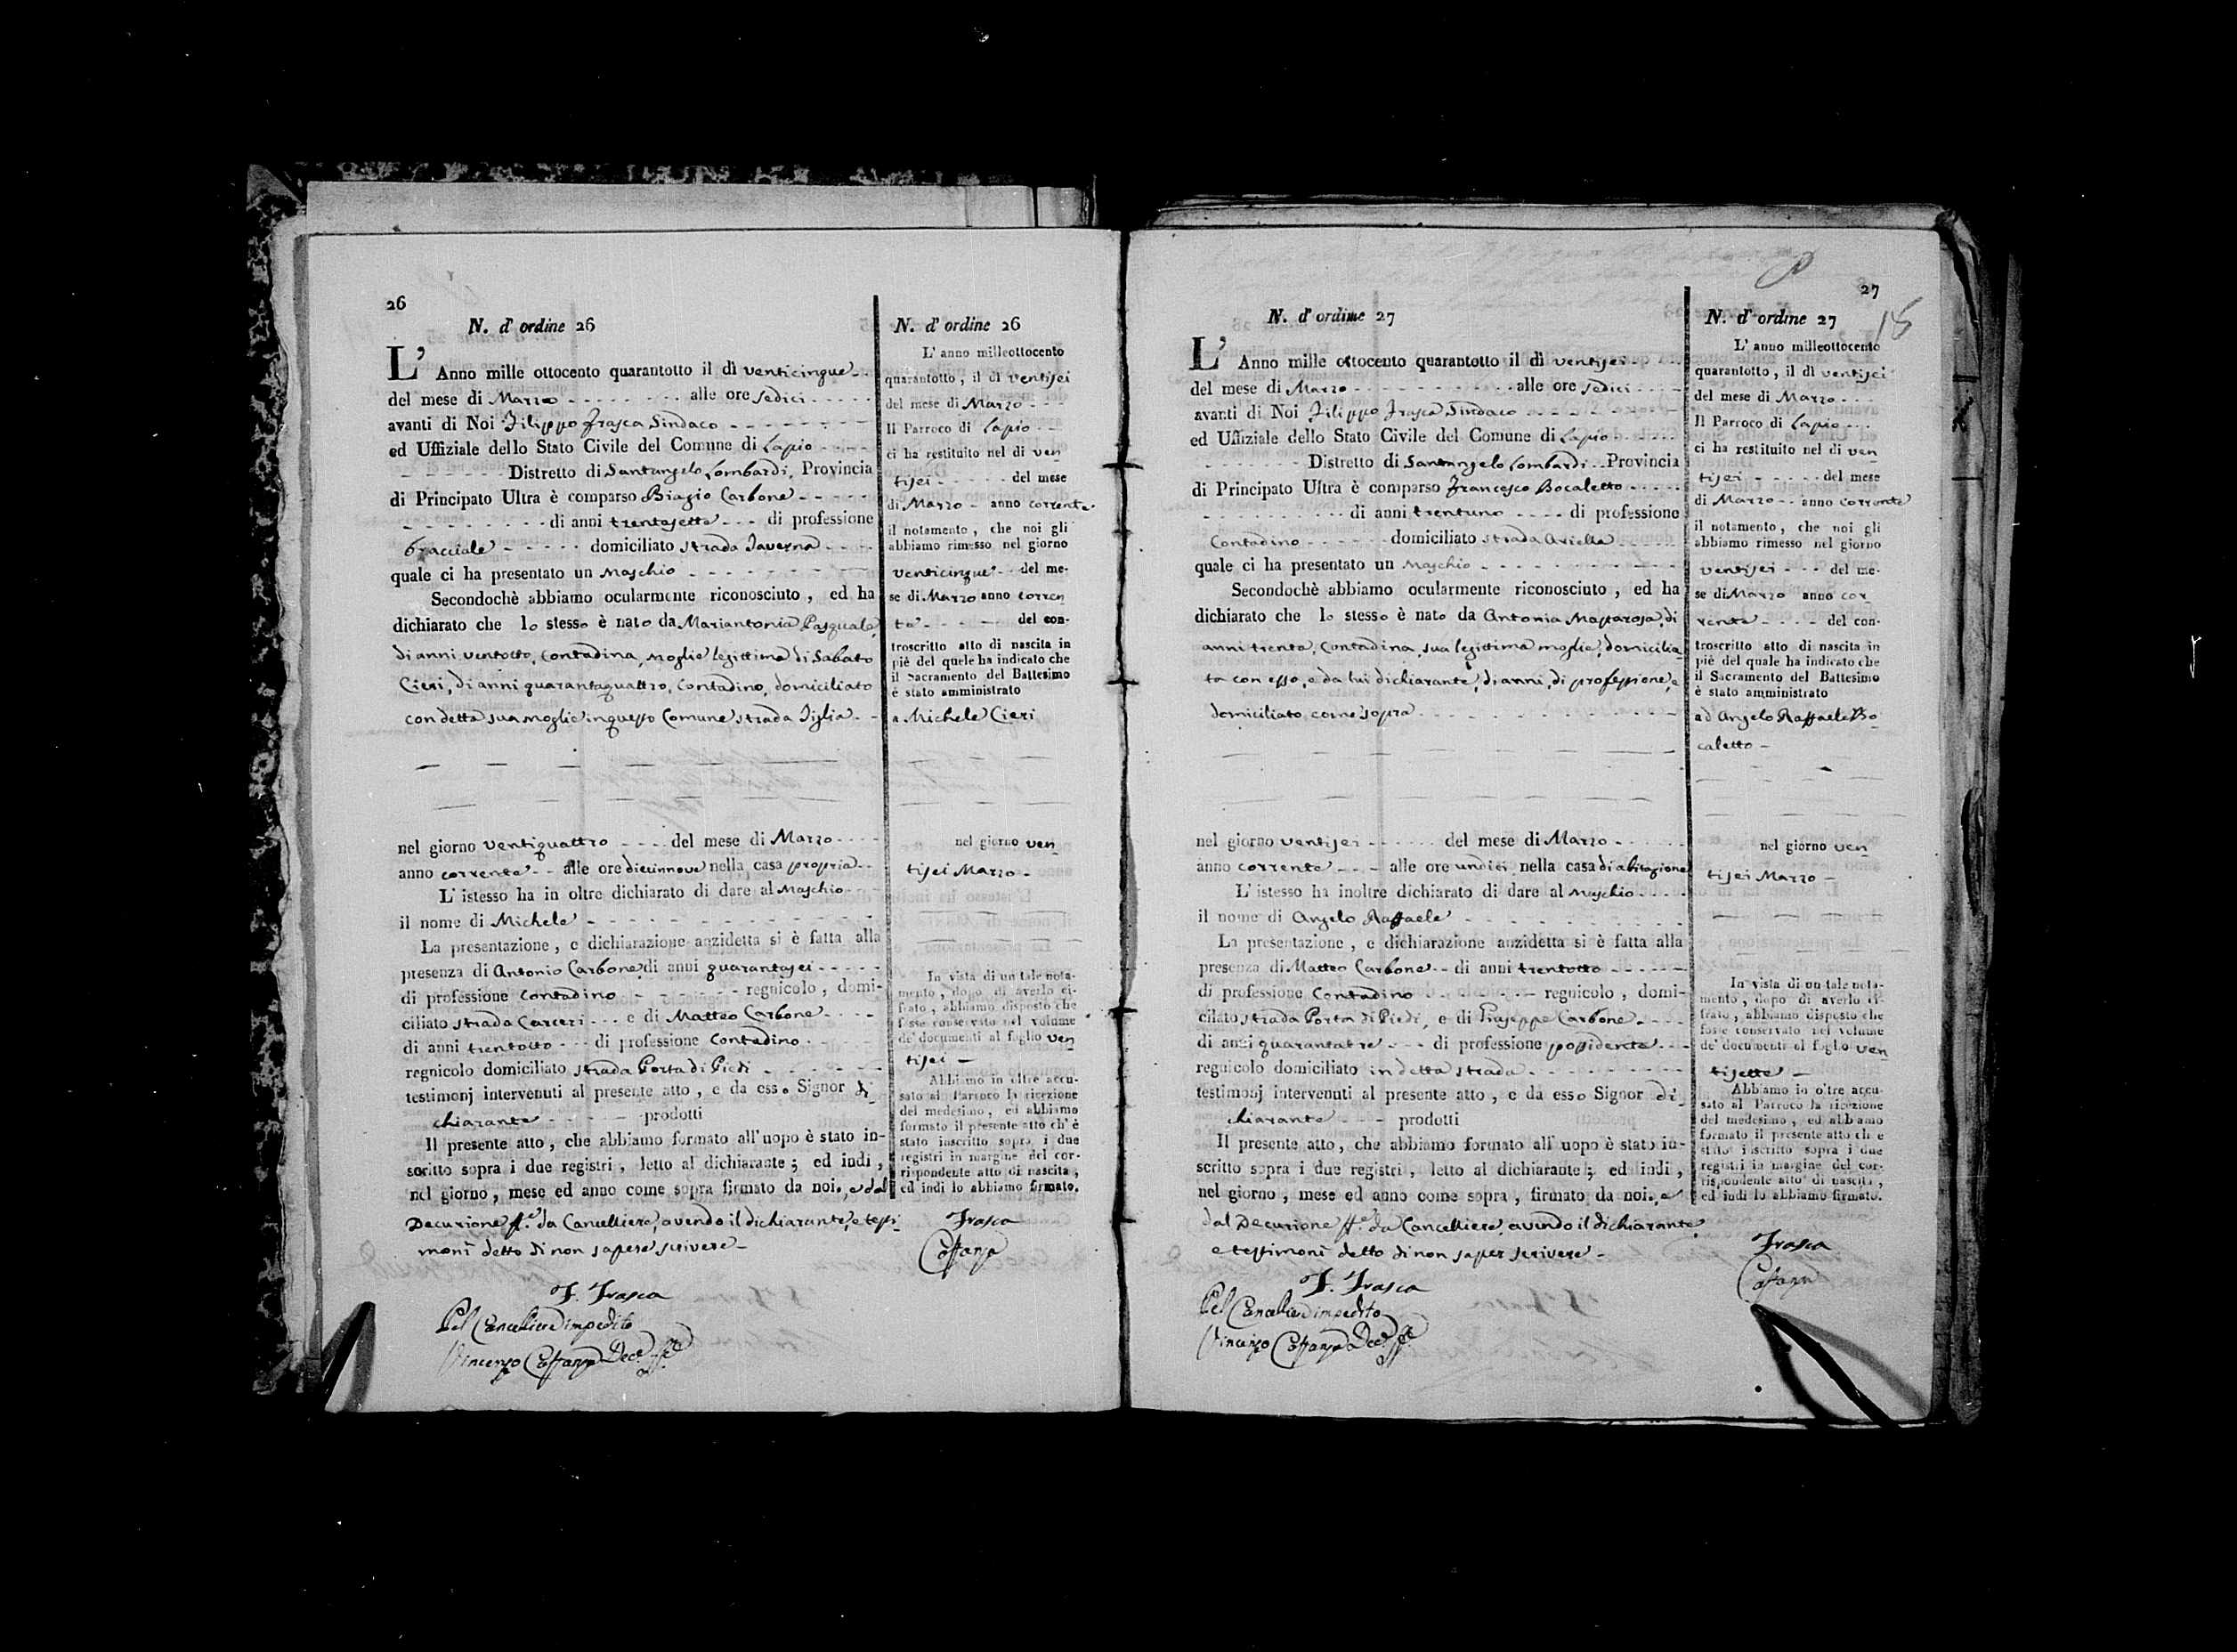 26
N. d' ordine 26
L' Anno mille ottocento quarantotto il dì venticinque
del mese di Marzo alle ore sedici
avanti di Noi Filippo Frasca Sindaco
ed Uffiziale dello Stato Civile del Comune di Lapio
Distretto di Santangelo Lombardi, Provincia
di Principato Ultra è comparso Biagio Carbone
di anni trentasette di professione
bracciale domiciliato strada Taverna
quale ci ha presentato un Maschio
Secondochè abbiamo ocularmente riconosciuto, ed ha
dichiarato che lo stesso è nato da Mariantonia Pasquale,
di anni ventotto, contadina, moglie legittima di Sabato
Cieri, di anni quarantaquattro, contadino, domiciliato
con detta sua moglie in questo Comune strada Figlia
nel giorno ventiquattro del mese di Marzo
anno corrente alle ore diecinnove nella casa propria
L' istesso ha in oltre dichiarato di dare al Maschio
il nome di Michele
La presentazione, e dichiarazione anzidetta si è fatta alla
presenza di Antonio Carbone di anni quarantasei
di professione contadino regnicolo, domi-
ciliato strada Carceri e di Matteo Carbone
di anni trentotto di professione Contadino
regnicolo domiciliato strada Porta di Piedi
testimonj intervenuti al presente atto, e da esso Signor di
chiarante prodotti
Il presente atto, che abbiamo formato all' uopo è stato in-
scritto sopra i due registri, letto al dichiarante; ed indi,
nel giorno, mese ed anno come sopra firmato da noi, e dal
Decurione ff.e da Cancelliere, avendo il dichiarante, e testi
moni detto di non sapere scrivere
F. Frasca
Pel Cancelliere impedito
Vincenzo Dec.e ff.e
N. d' ordine 26
L' anno milleottocento
quarantotto, il dì ventisei
del mese di Marzo
Il Parroco di Lapio
ci ha restituito nel di ven
tisei del mese
di Marzo anno corrente
il notamento, che noi gli
abbiamo rimesso nel giorno
venticinque del me-
se di Marzo anno corren
te del con-
troscritto atto di nascita in
piè del quele ha indicato che
il Sacramento del Battesimo
è stato amministrato
a Michele Cieri
nel giorno ven
tisei Marzo
In vista di un tale nota-
mento, dopo di averlo ci-
frato, abbiamo disposto che
fosse conservato nel volume
de' documenti al foglio ven
tisei
Abbiamo in oltre accu-
sato al Parroco la ricezione
del medesimo, ed abbiamo
formato il presente atto ch' è
stato inscritto sopra i due
registri in margine del cor-
rispondente atto di nascita,
ed indi lo abbiamo firmato.
Frasca
27
N. d' ordime 27
L' Anno mille ottocento quarantotto il dì ventisei
del mese di Marzo alle ore sedici
avanti di Noi Filippo Frasca Sindaco
ed Uffiziale dello Stato Civile del Comune di Lapio
Distretto di Santangelo Lombardi Provincia
di Principato Ultra è comparso Francesco Bocaletto
di anni trentuno di professione
Contadino domiciliato strada Ariella
quale ci ha presentato un Maschio
Secondochè abbiamo ocularmente riconosciuto, ed ha
dichiarato che lo stesso è nato da Antonia Mastarosa, di
anni trenta, Contadina, sua legittima moglie, domicilia
ta con esso, e da lui dichiarante, di anni, di professione, e
domiciliato come sopra
nel giorno ventisei del mese di Marzo
anno corrente alle ore undici nella casa di abitazione
L' istesso ha inoltre dichiarato di dare al Maschio
il nome di Angelo Raffaele
La presentazione, e dichiarazione anzidetta si è fatta alla
presenza di Matteo Carbone di anni trentotto
di professione Contadino regnicolo, domi-
ciliato strada Porta di Piedi, e di Giuseppe Carbone
di anni quarantatre di professione possidente
regnicolo domiciliato in detta strada
testimonj intervenuti al presente atto, e da esso Signor di
chiarante prodotti
Il presente atto, che abbiamo formato all' uopo è stato in-
scritto sopra i due registri, letto al dichiarante; ed indi,
nel giorno, mese ed anno come sopra, firmato da noi, e
dal Decurione ff.e da Cancelliere, avendo il dichiarante
e testimoni detto di non saper scrivere
F. Frasca
Pel Cancelliere impedito
Vincenzo Dec.e ff.e
N. d' ordine 27
18
L' anno milleottocento
quarantotto, il dì ventisei
del mese di Marzo
Il Parroco di Lapio
ci ha restituito nel di ven
tisei del mese
di Marzo anno corrente
il notamento, che noi gli
abbiamo rimesso nel giorno
ventisei del me-
se di Marzo anno cor
rente del con-
troscritto atto di nascita in
piè del quale ha indicato che
il Sacramento del Battesimo
è stato amministrato
ad Angelo Raffaele Bo
caletto
nel giorno ven
tisei Marzo
In vista di un tale nota-
mento, dopo di averlo ci-
frato, abbiamo disposto che
fosse conservato nel volume
de' documenti al foglio ven
tisette
Abbiamo in oltre accu-
sato al Parroco la ricezione
del medesimo, ed abbiamo
formato il presente atto ch' è
stato inscritto sopra i due
registri in margine del cor-
rispondente atto di nascita,
ed indi lo abbiamo firmato.
Frasca